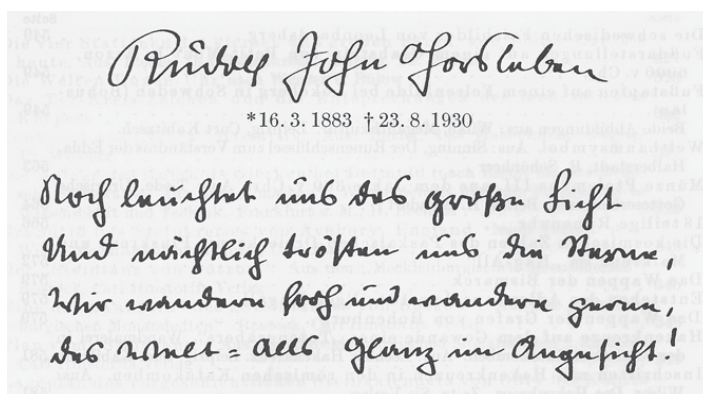 Rudolf John Gorsleben
*16. 3. 1883 † 23. 8. 1930
Noch leuchtet uns das große Licht
Und nächtlich trösten uns die Sterne,
Wir wandern froh und wandern gerne,
des Welt=Alls Glanz im Angesicht.